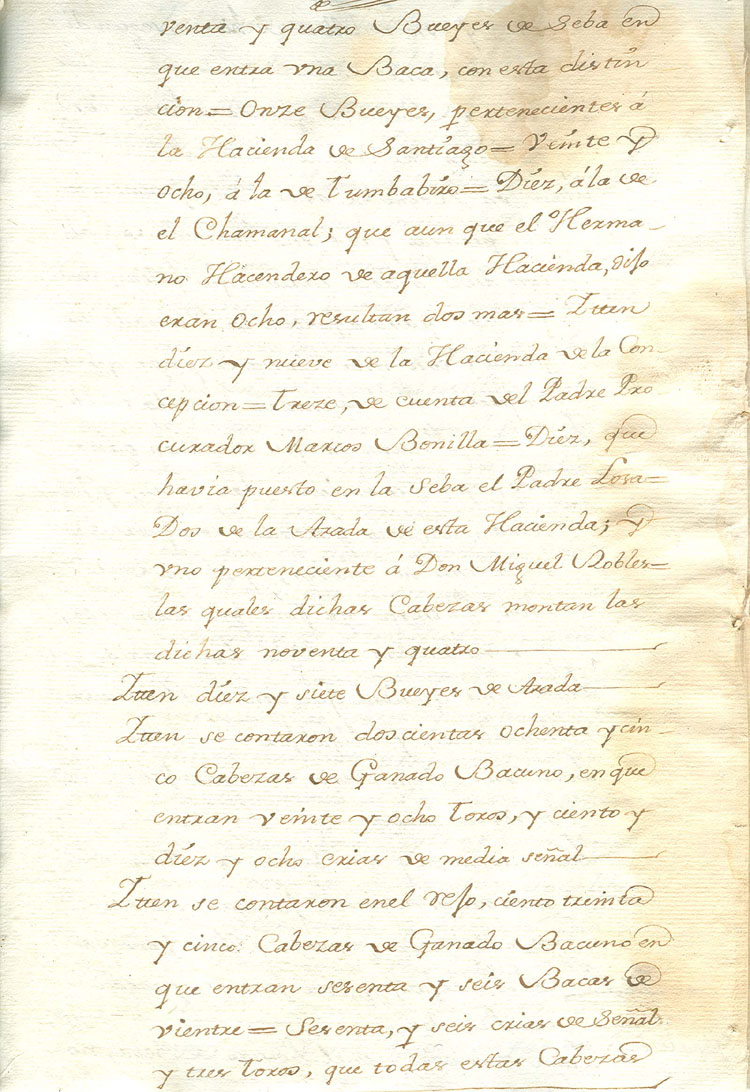 venta y quatro Bueyes de Seba en
que entra vna Baca, con esta distin
cion= Onze Bueyes, pertenecientes á
la Hacienda de Santiago= Veinte y
ocho, á la de Tumbabiro= Diez, á la de
el Chamanal; que aun que el Herma_
no Hacendero de aquella Hacienda, dijo
eran ocho, resultan dos mas= Ittem
diez y nueve de la Hacienda de la Con
cepcion= Treze, de cuenta del Padre Pro
curador Marcos Bonilla= Diez, que
havia puesto en la Seba el Padre Losa=
Dos de la Arada de esta Hacienda; y
vno perteneciente á Don Miguel Robles=
las quales dichas Cabezas montan las
dichas noventa y quatro
Ittem diez y siete Bueyes de Arada
Ittem se contaron doscientas ochenta y cin_
co Cabezas de Ganado Bacuno, en que
entran veinte y ocho Toros, y ciento y
diez y ocho crias de media señal
Ittem se contaron en el rejo, ciento treinta
y cinco Cabezas de Ganado Bacuno en
que entran sesenta y seis Bacas de
vientre= Sesenta, y seis crias de Señal
y tres Toros, que todas estas Cabezas